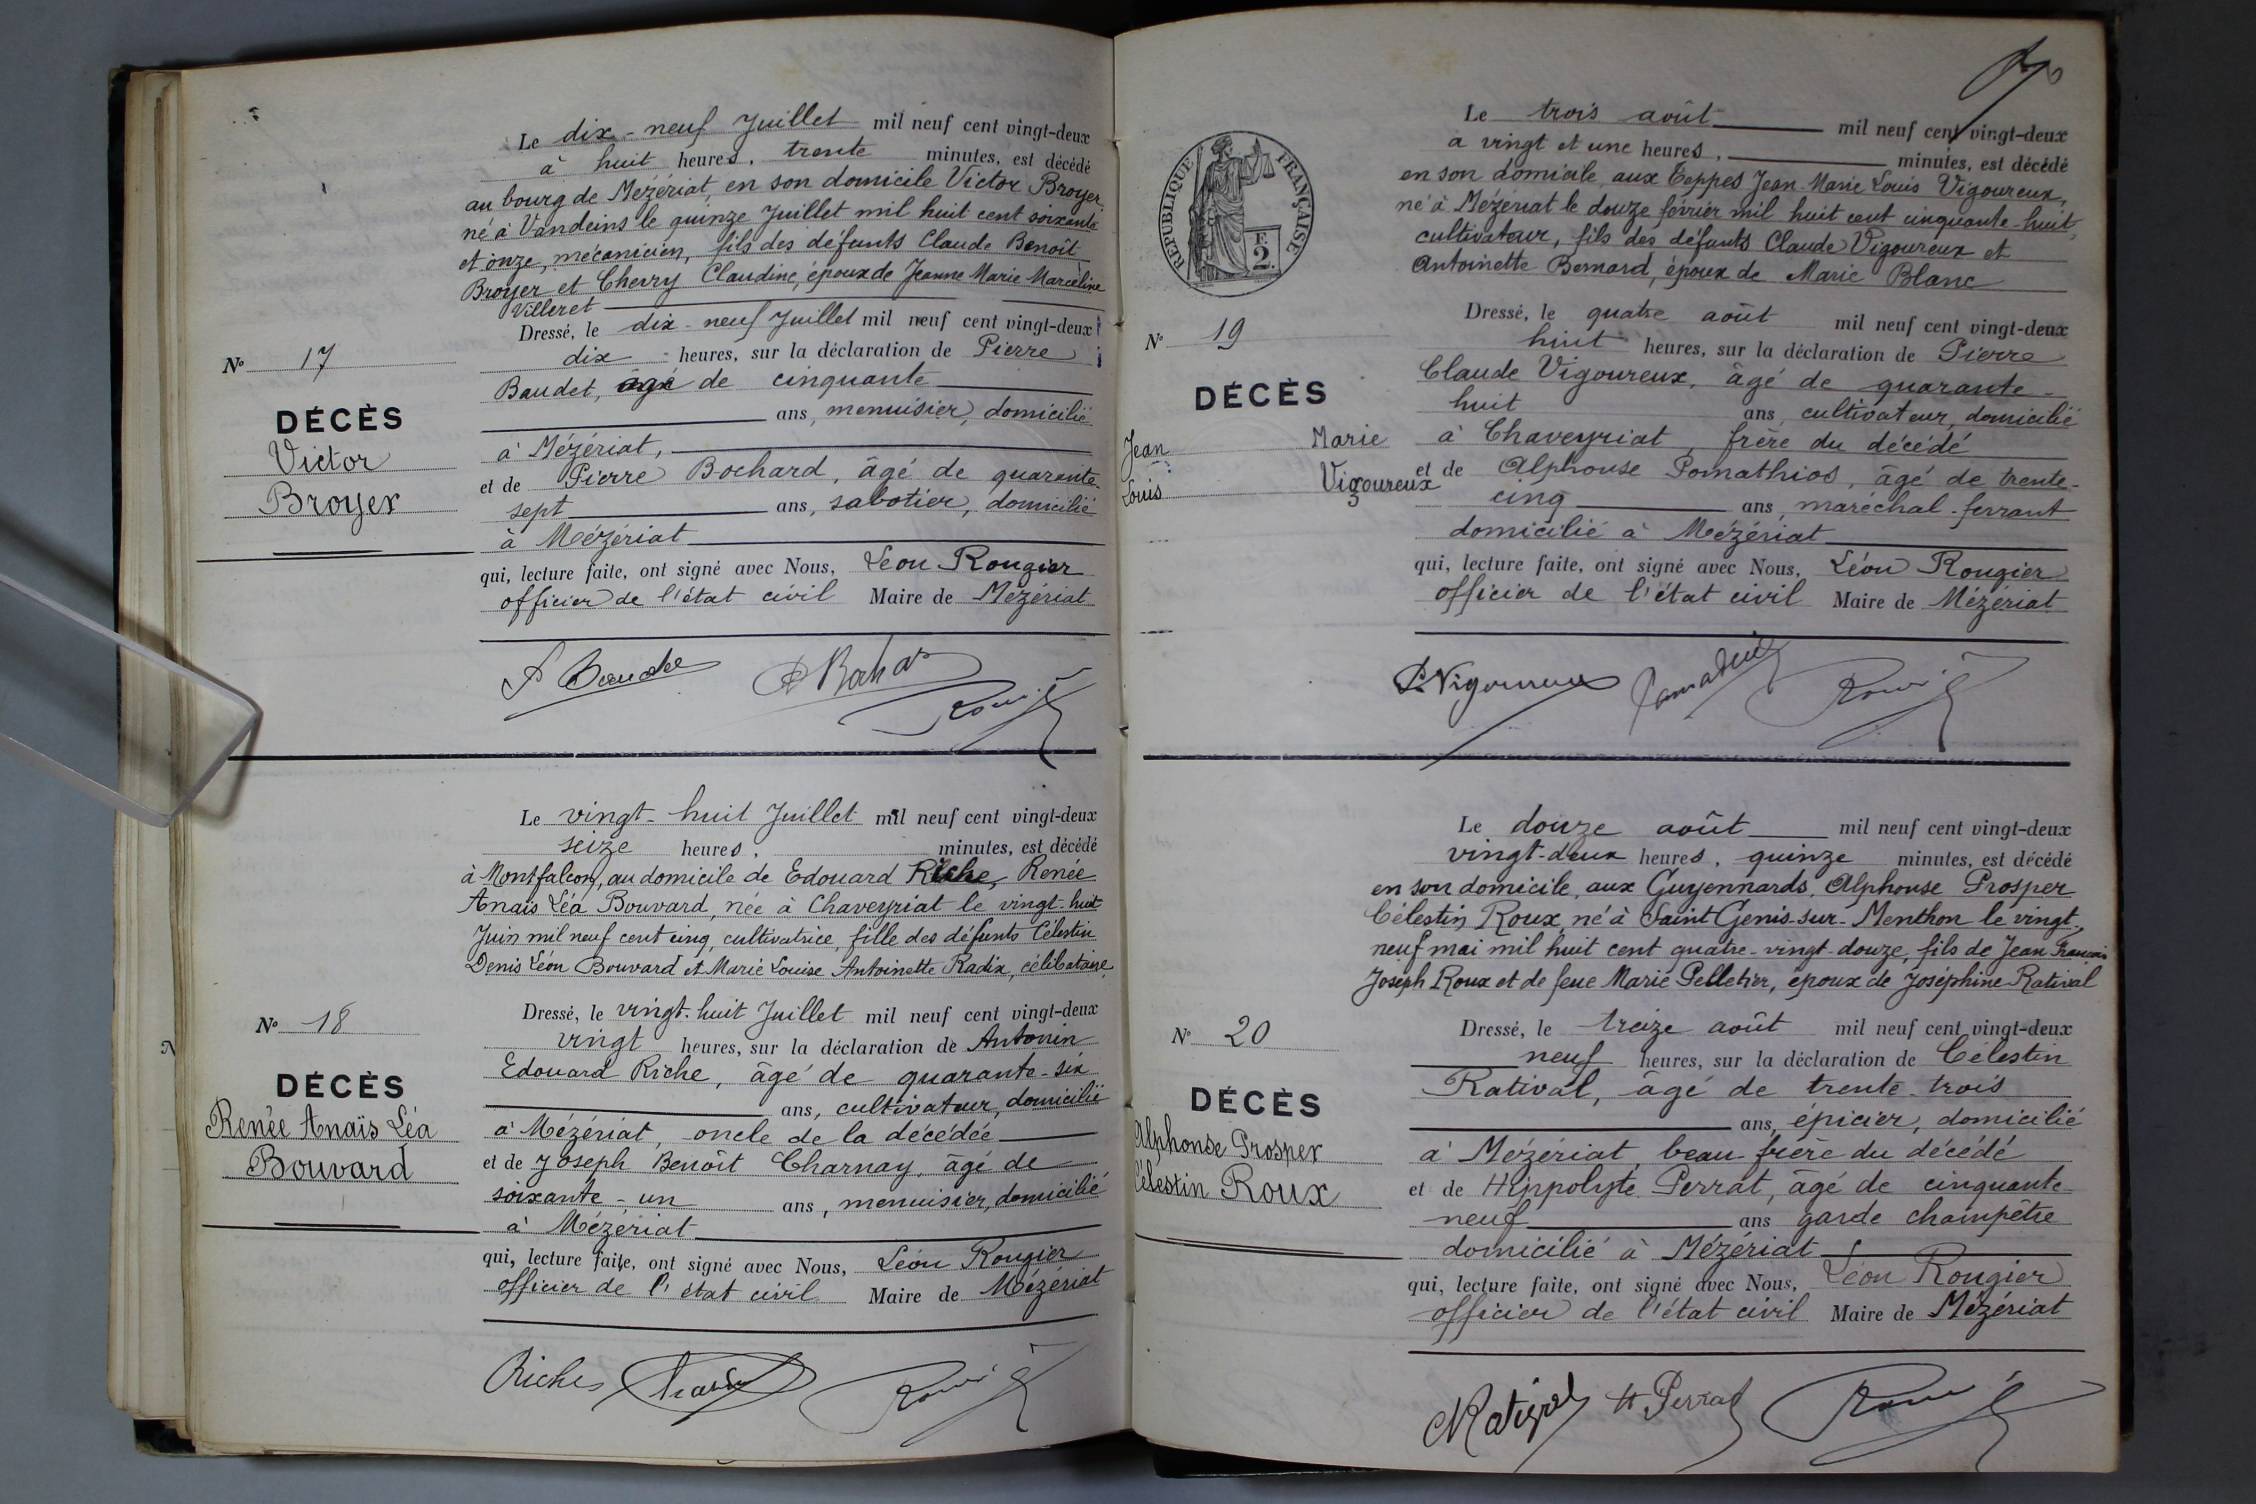 Le dix-neuf Juillet mil neuf cent vingt-deux
à huit heures, trente minutes, est décédé
au bourg de Mézériat, en son domicile Victor Broyer,
né à Vandeins le quinze Juillet mil huit cent soixante
et onze, mécanicien, fils des défunts Claude Benoit
Broyer et Cherry Claudine, époux de Jeanne Marie Marceline
Villeret
Dressé, le dix-neuf Juillet mil neuf cent vingt-deux
dix heures, sur la déclaration de Pierre
Baudet, âgé de cinquante
ans, menuisier, domicilié
à Mézériat,
et de Pierre Bochard, âgé de quarante-
sept ans, sabotier, domicilié
à Mézériat
qui, lecture faite, ont signé avec Nous, Léon Rougier
officier de l'état civil Maire de Mézériat
No 17
DÉCÈS
Victor
Broyer
Le vingt-huit Juillet mil neuf cent vingt-deux
seize heures, minutes, est décédé
à Montfalcon, au domicile de Edouard Riche, Renée
Anaïs Léa Bouvard, née à Chaveyriat le vingt-huit
Juin mil neuf cent cinq, cultivatrice, fille des défunts Célestin
Denis Léon Bouvard et Marie Louise Antoinette Radix, célibataire
Dressé, le vingt-huit Juillet mil neuf cent vingt-deux
vingt heures, sur la déclaration de Antonin
Edouard Riche, âgé de quarante-six
ans, cultivateur, domicilié
à Mézériat, oncle de la décédée
et de Joseph Benoît Charnay, âgé de
soixante-un ans, menuisier, domicilié
à Mézériat
qui, lecture faite, ont signé avec Nous, Léon Rougier
officier de l'état civil Maire de Mézériat
No 18
DÉCÈS
Renée Anaïs Léa
Bouvard
Riche
RÉPUBLIQUE FRANÇAISE
F.
2.
Le trois août mil neuf cent vingt-deux
à vingt et une heures, minutes, est décédé
en son domicile aux Teppes Jean-Marie Louis Vigoureux,
né à Mézériat le douze février mil huit cent cinquante-huit,
cultivateur, fils des défunts Claude Vigoureux et
Antoinette Bernard, époux de Marie Blanc
Dressé, le quatre août mil neuf cent vingt-deux
huit heures, sur la déclaration de Pierre
Claude Vigoureux, âgé de quarante-
huit ans, cultivateur, domicilié
à Chaveyriat, frère du décédé
et de Alphonse Pomathios, âgé de trente-
cinq ans, maréchal-ferrant
domicilié à Mézériat
qui, lecture faite, ont signé avec Nous, Léon Rougier
officier de l'état civil Maire de Mézériat
No 19
DÉCÈS
Jean Marie
Louis Vigoureux
P. Vigoureux
Le douze août mil neuf cent vingt-deux
vingt-deux heures, quinze minutes, est décédé
en son domicile, aux Guyennards, Alphonse Prosper
Célestin Roux, né à Saint Genis-sur-Menthon le vingt-
neuf mai mil huit cent quatre-vingt-douze, fils de Jean François
Joseph Roux et de feue Marie Pelletier, époux de Joséphine Ratival
Dressé, le treize août mil neuf cent vingt-deux
neuf heures, sur la déclaration de Célestin
Ratival, âgé de trente-trois
ans, épicier, domicilié
à Mézériat, beau frère du décédé
et de Hippolyte Perrat, âgé de cinquante-
neuf ans garde champêtre
domicilié à Mézériat
qui, lecture faite, ont signé avec Nous, Léon Rougier
officier de l'état civil Maire de Mézériat
No 20
DÉCÈS
Alphonse Prosper
Célestin Roux
H Perrat